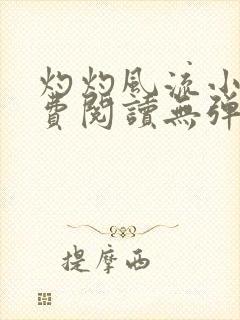 灼灼風流小
費閱讀無彈
提摩西